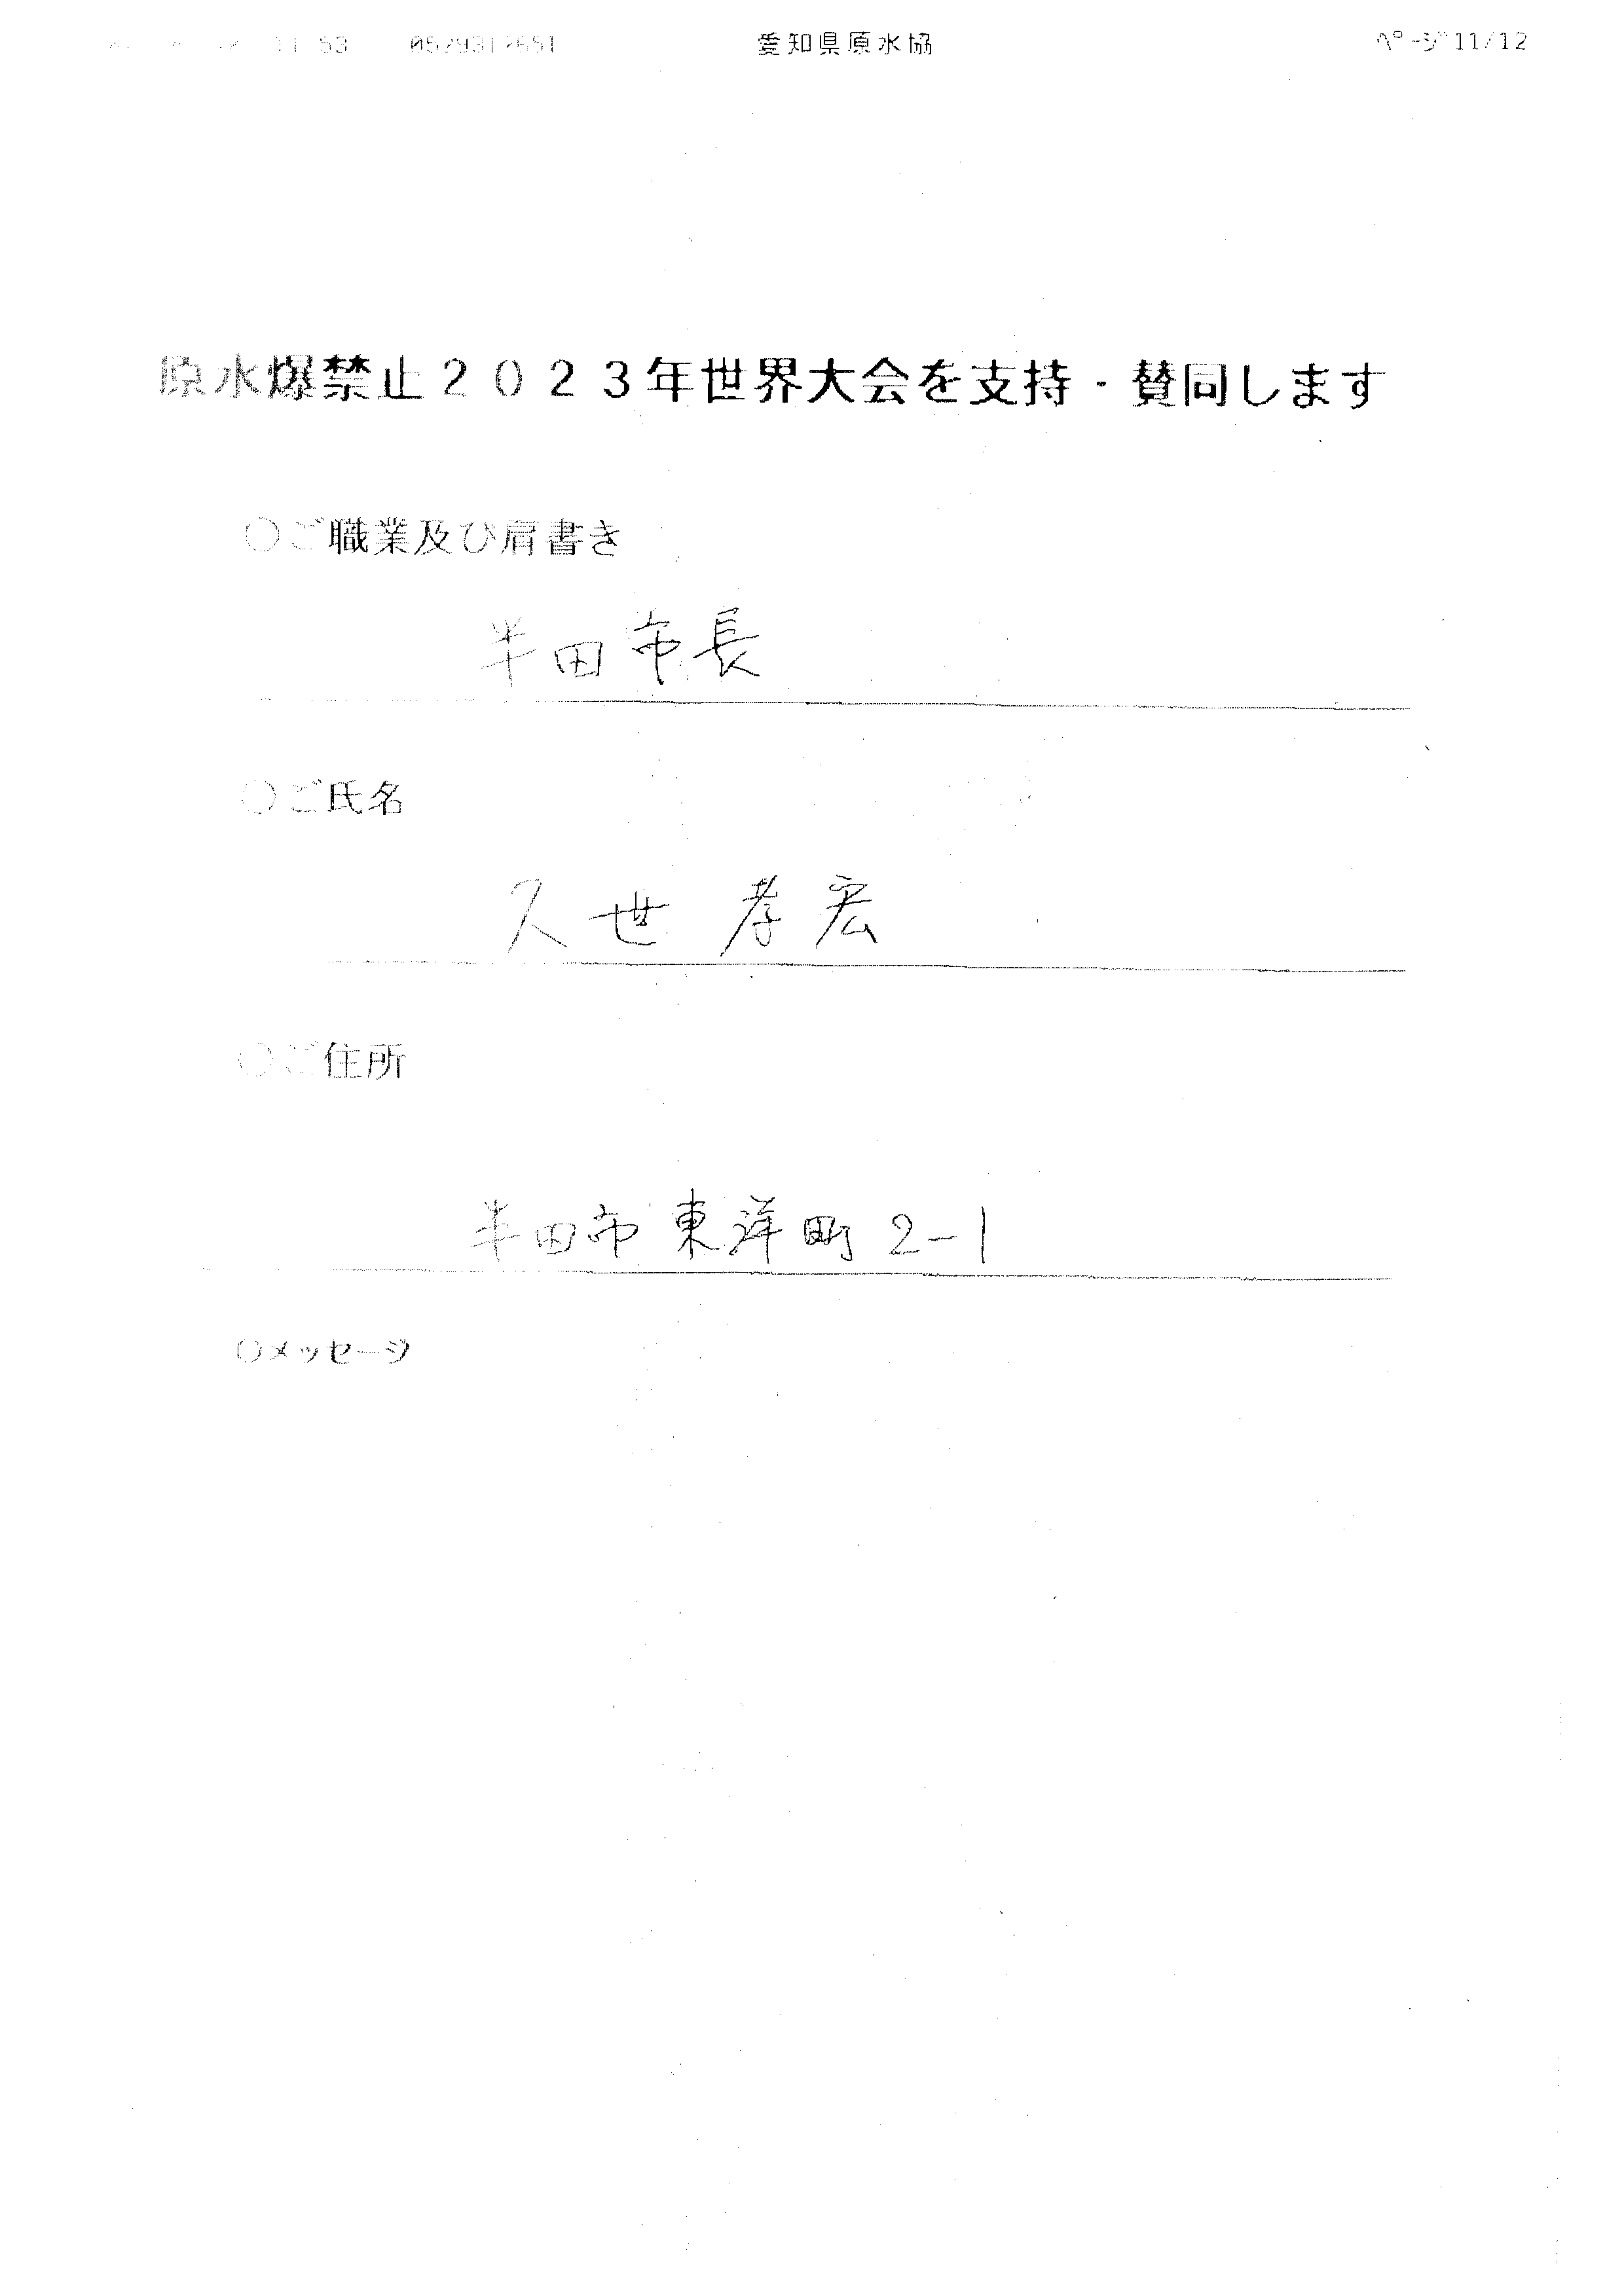 11 53 愛知県原水協 ﾍﾟｰｼﾞ 11/12
原水爆禁止２０２３年世界大会を支持・賛同します
○ご職業及び肩書き
半田市長
○ご氏名
久世 孝宏
○ご住所
半田市東洋町2-1
○メッセージ